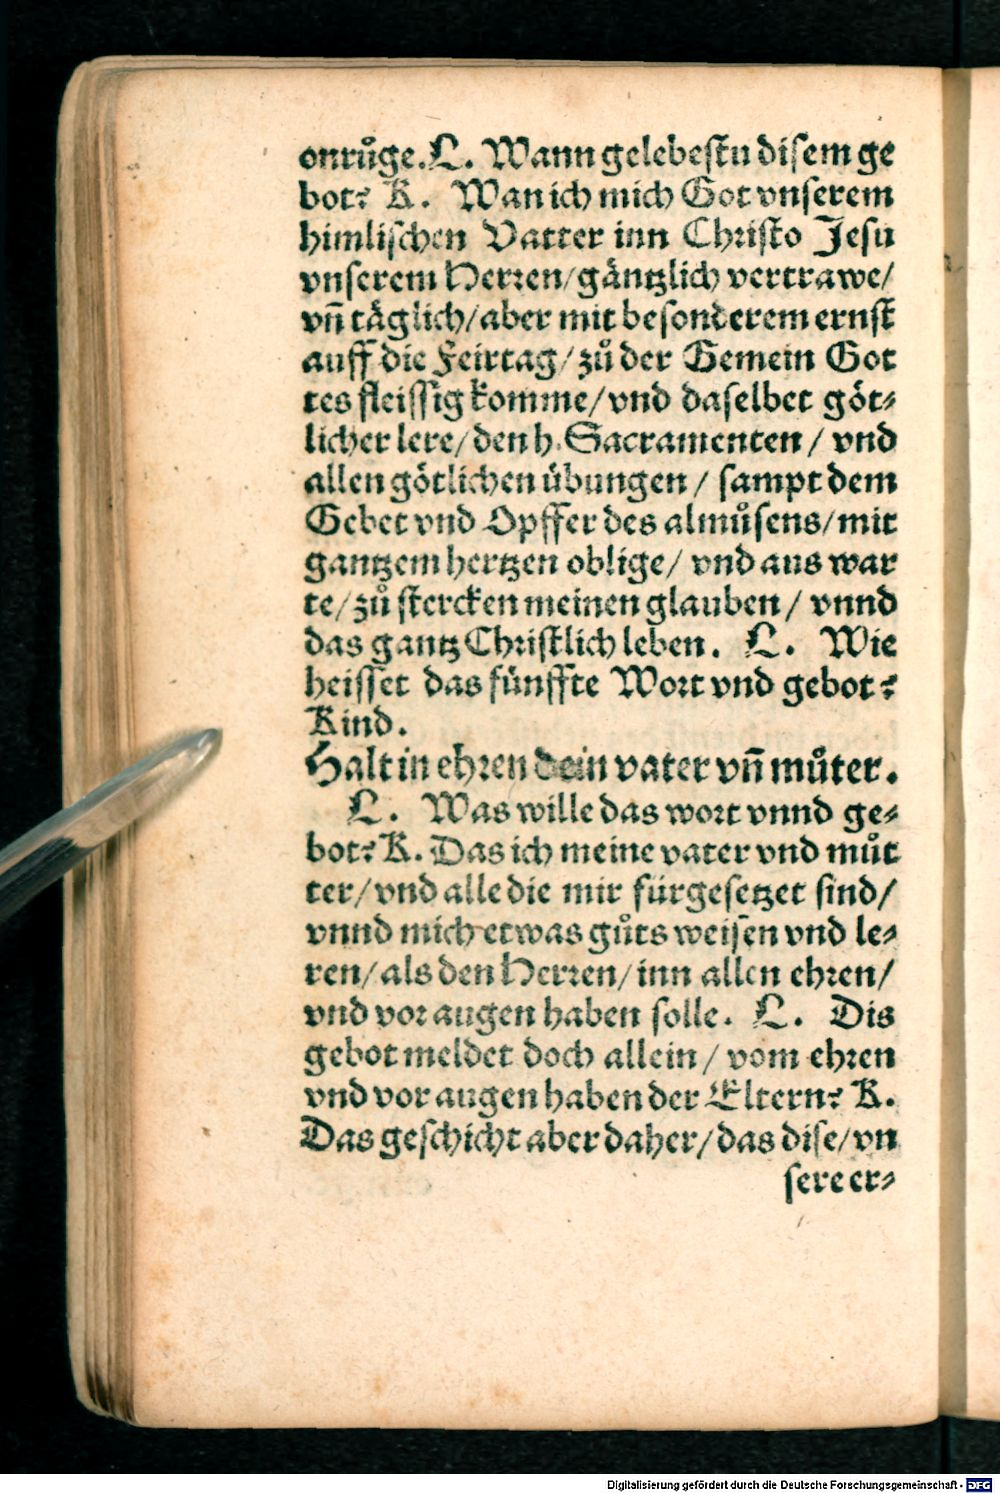 onrůge. L. Wann gelebestu disem ge
bot? K. Wan ich mich Got vnserem
himlischen Vatter inn Christo Jesu
vnserem Herren/ gäntzlich vertrawe/
vñ täglich/ aber mit besonderem ernst
auff die Feirtag/ zů der Gemein Got
tes fleissig komme/ vnd daselbet göt-
licher lere/ den h. Sacramenten/ vnd
allen götlichen übungen/ sampt dem
Gebet vnd Opffer des almůsens/ mit
gantzem hertzen oblige/ vnd aus war
te/ zů stercken meinen glauben/ vnnd
das gantz Christlich leben. L. Wie
heisset das fünffte Wort vnd gebot?
Kind.
Halt in ehren dein vater vñ můter.
L. Was wille das wort vnnd ge-
bot? K. Das ich meine vater vnd můt
ter/ vnd alle die mir fürgesetzet sind/
vnnd mich etwas gůts weisen vnd le-
ren/ als den Herren/ inn allen ehren/
vnd vor augen haben solle. L. Dis
gebot meldet doch allein/ vom ehren
vnd vor augen haben der Eltern? K.
Das geschicht aber daher/ das dise/ vn
sere er-
Digitalisierung gefördert durch die Deutsche Forschungsgemeinschaft - DFG